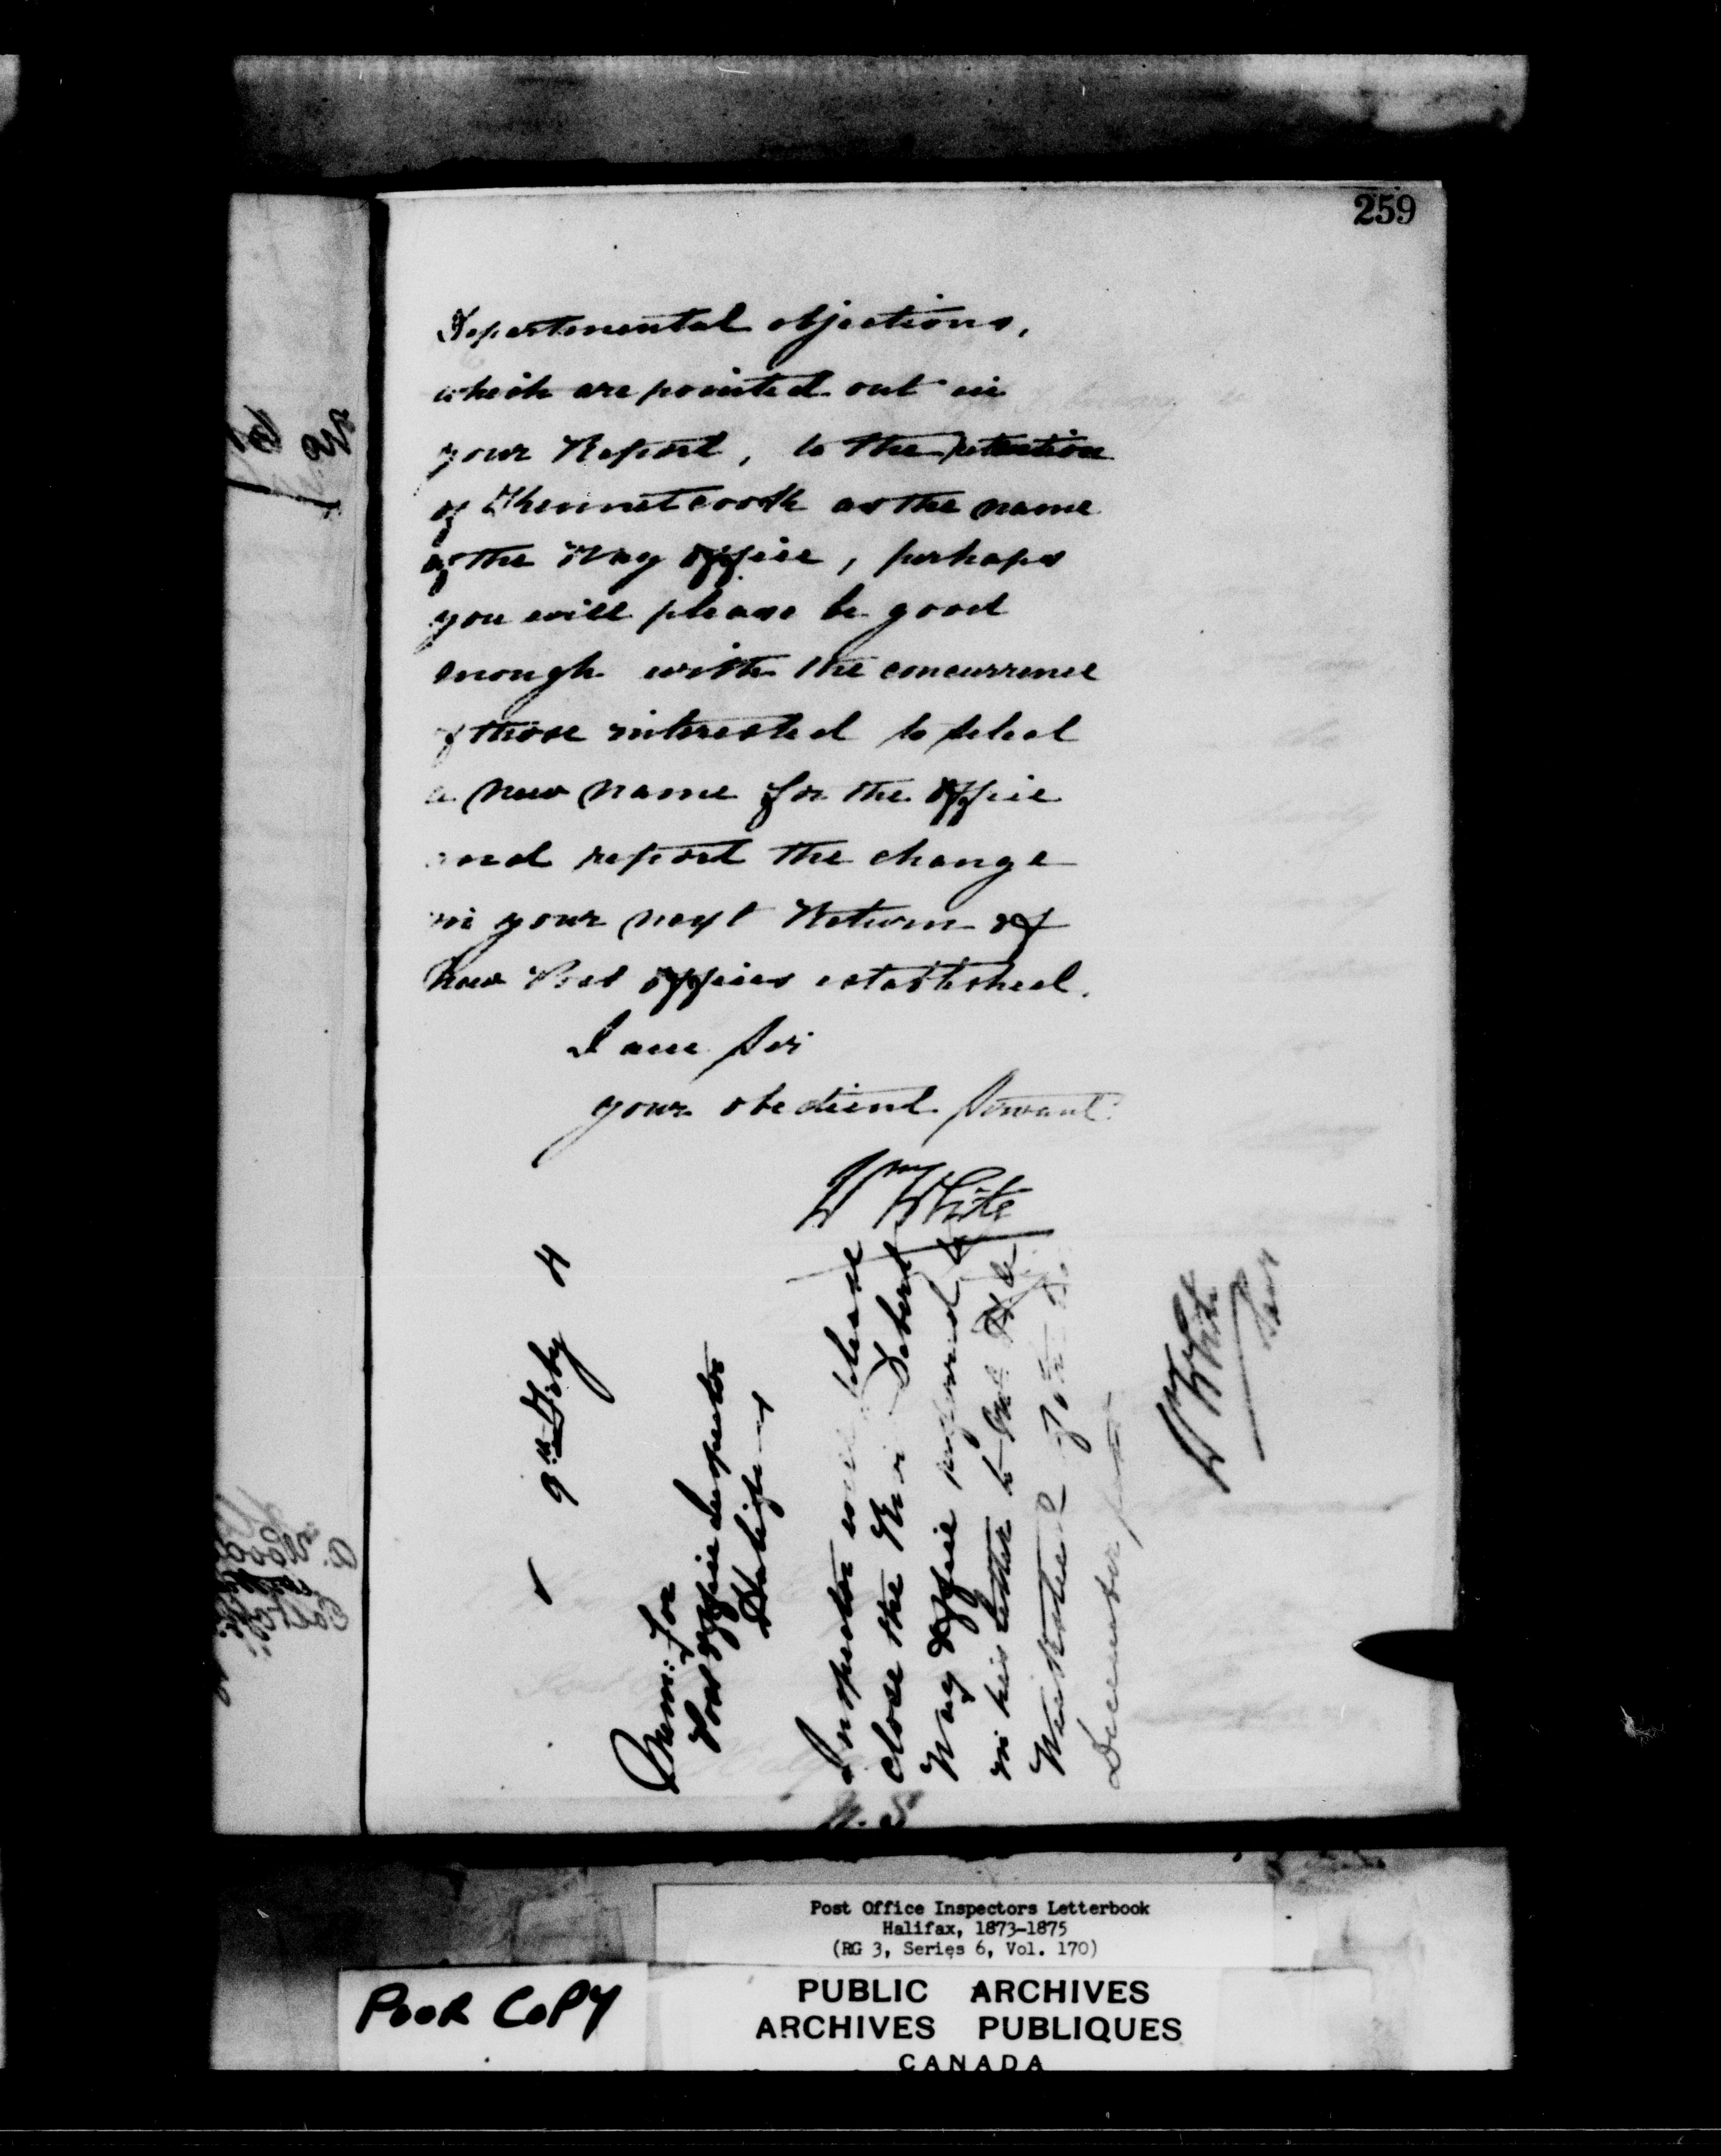 259
Departmental objections,
which are pointed out in
your Report, to the retention
of Kennetcook as the name
of the Way Office, perhaps
you will please be good
enough with the concurrence
of those interested to select
a new name for the Office
and report the change
in your next Return of
new Post Offices established.
I am Sir
your obedient Servant
Wm White
9th Feby 4
Mem: for
Post Office Inspector
Halifax
Inspector will please
close the Debert
Way Office referred to
in his letter to the
December
Wm White
Secy
N.S
Post Office Inspectors Letterbook
Halifax, 1873-1875
(RG 3, Series 6, Vol. 170)
POOR COPY
PUBLIC ARCHIVES
ARCHIVES PUBLIQUES
CANADA